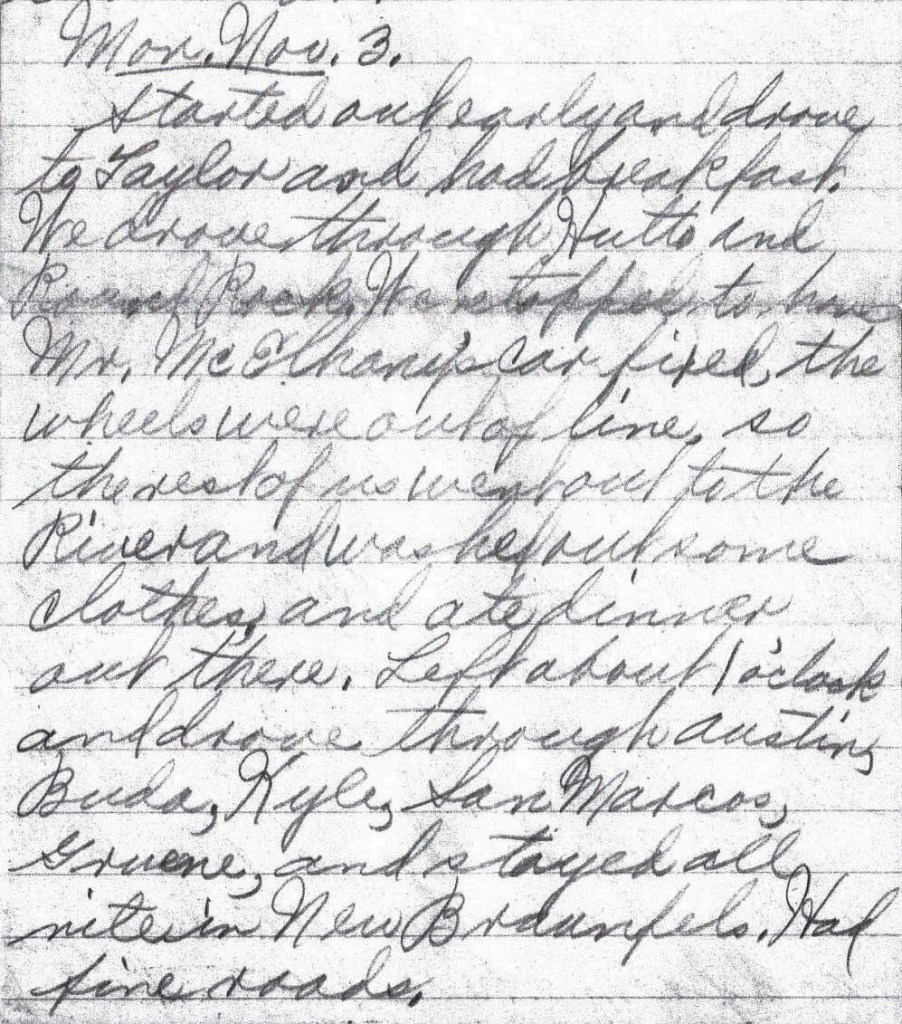 Mon. Nov. 3.
Started out early and drove
to Taylor and had breakfast.
We drove through Hutto and
Round Rock. We stopped to have
Mr. McElhany's car fixed, the
wheels were out of line, so
the rest of us went out to the
River and washed out some
clothes, and ate dinner
out there. Left about 1 o'clock
and drove through Austin,
Buda, Kyle, San Marcos,
Gruene, and stayed all
nite in New Braunfels. Had
fine roads.